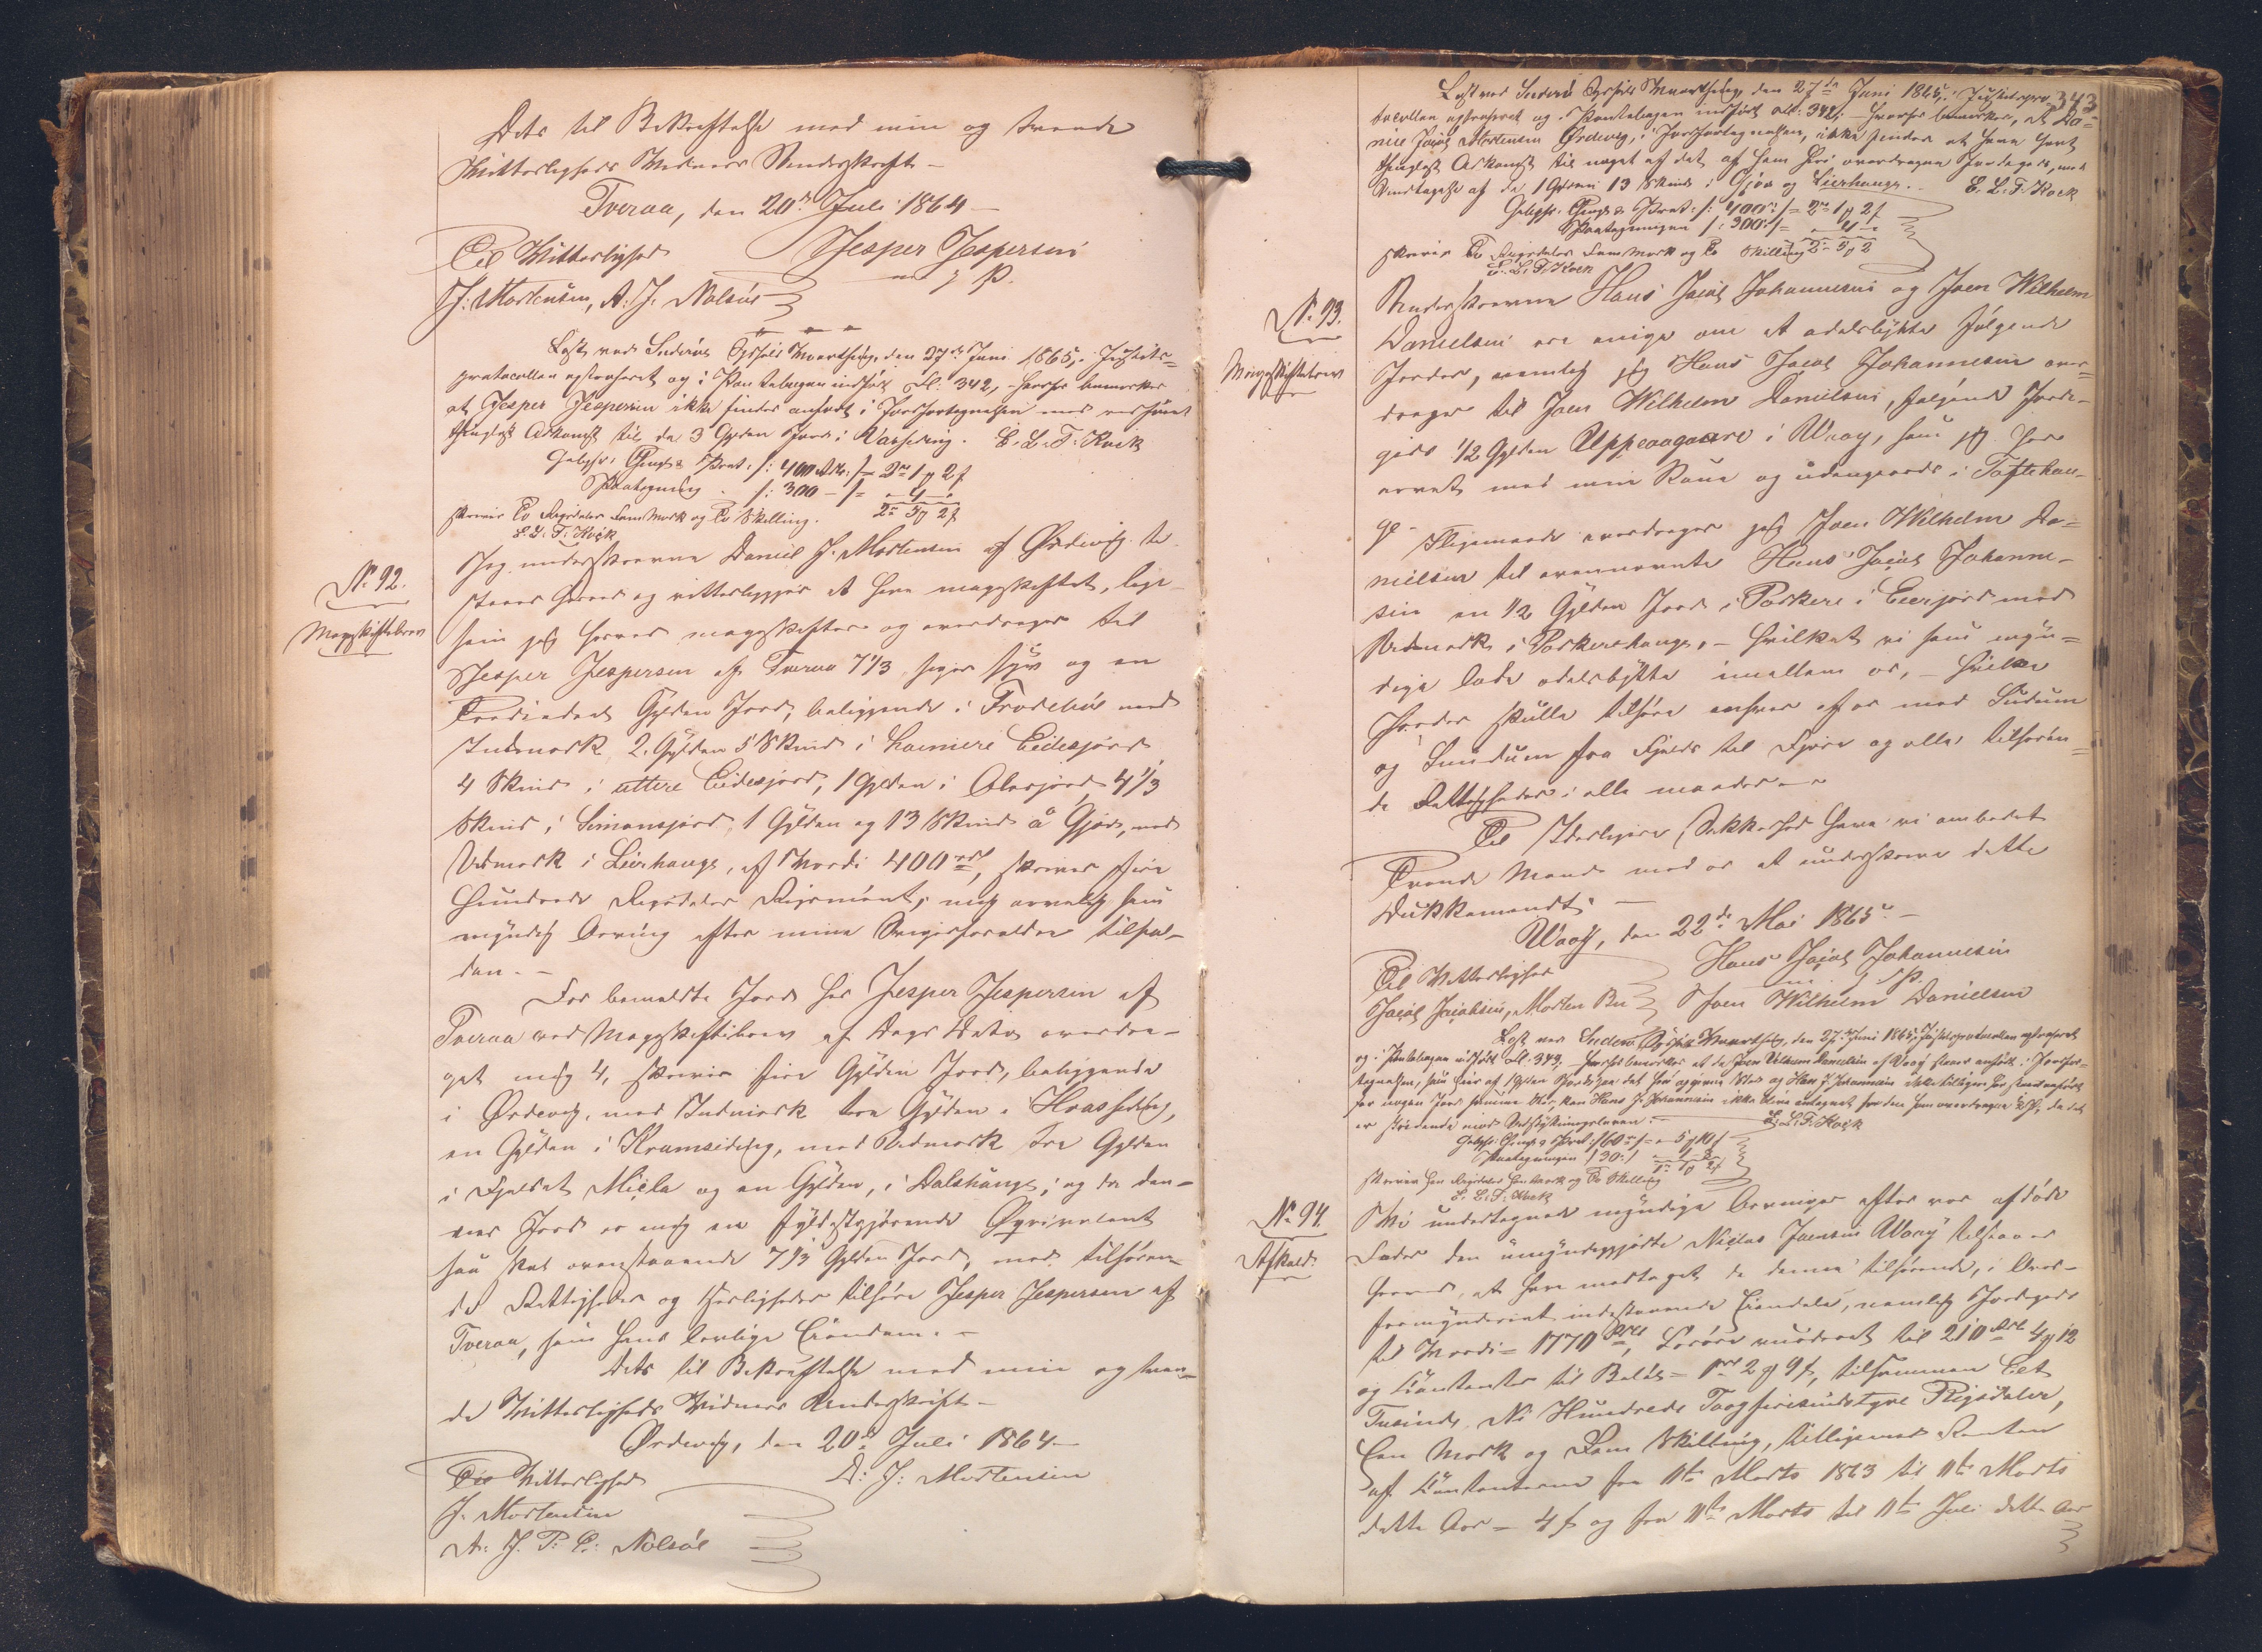 Dets til Bekræftelse med min og tvende
Vitterligheds Vidners Underskrift –
Tveraa, den 20de Juli 1864 –
Til Vitterlighed Jesper Jespersen
J. Mortensen, A. J. Nolsøe m. f. P.
Læst ved Suderøe Syssels Vaarthing den 27de Juni 1865, i Justits-
protocollen extraheret og i Pantebogen indført Fol. 342, – hvorfor bemærkes
at Jesper Jespersen ikke findes anført i Jordfortegnelsen med
thinglæst Adkomst til de 3 Gylden Jord i E. L. T. Kock
Gebyhr: Thingl. & Prot. /: 400 Rd. :/ = 2 rd 1 # 2 s
Paategning /: 300 – :/ = „ 4 „
skriver To Rigsdaler Fem Mark og To Skilling. 2 rd 5 # 2 s
E. L. T. Kock
No 92.
Mageskiftebrev
Jeg underskrevne Daniel J. Mortensen af Ørdevig til-
staaer herved og vitterliggjør at have mageskiftet, lige-
som jeg herved mageskifter og overdrager til
Jesper Jespersen af Tveraa 7 1/3 siger syv og en
Trediedeel Gylden Jord, beliggende i Frodebøe med
Indmark 2 Gylden 5 Skind i hæmere Eidesjord
4 Skind i uttere Eidesjord, 1 Gylden i Olesjord 4 1/3
Skind i Simonsjord, 1 Gylden og 13 Skind å Gjøv, med
Udmark i Lierhauge, af Værdi 400 rd, skriver fire
Hundrede Rigsdaler Rigsmønt, mig arvelig som
myndig Arving efter mine Svigerforældre tilfal-
den. –
For bemeldte Jord har Jesper Jespersen af
Tveraa ved Mageskiftebrev af Dags Dato overdra-
get mig 4, skriver fire Gylden Jord, beliggende
i Ørdevig, med Indmark tre Gylden i
en Gylden i med Udmark tre Gylden
i Fjeldet Micla og en Gylden, i Dalshauge; og da den-
nes Jord er mig en fyldestgjørende Eqvivalent
saa skal ovenstaaende 7 1/3 Gylden Jord, med tilhøren-
de Rettigheder og Herligheder tilhøre Jesper Jespersen af
Tveraa, som hans lovlige Eiendom. –
Dets til Bekræftelse med min og tven-
de Vitterligheds Vidners Underskrift –
Ørdevig, den 20de Juli 1864 –
Til Vitterlighed D. J. Mortensen
J. Mortensen
A. J. P. C. Nolsøe
343
Læst ved Suderø Syssels Vaarthing den 27de Juni 1865, i Justitspro-
tocollen extraheret og i Pantebogen indført Fol. 342; – hvorfor bemærkes, at Da-
niel Jacob Mortensen Ørdevig, i Jordfortegnelsen, ikke findes at have havt
thinglæst Adkomst til noget af det af ham her overdragne Jordegods, med
Undtagelse af de 1 Gylden 13 Skind i Gjøv og Lierhauge. E. L. T. Kock
Gebyhr: Thingl. & Prot. /: 400 rd :/ = 2 rd 1 # 2 s
Paategningen /: 300 :/ = „ 4 „
skriver To Rigsdaler Fem Mark og To Skilling 2 rd 5 # 2
E. L. T. Kock
No 93.
Mageskiftebrev
Underskrevne Hans Jacob Johannesen og Joen Wilhelm
Danielsen ere enige om at odelsbytte følgende
Jorder, nemlig jeg Hans Jacob Johannesen over-
drager til Joen Wilhelm Danielsen, følgende Jorde-
gods 1/2 Gylden Uppeaagaare i Waag, som jeg har
arvet med min Kone og udengaards i Toftehau-
ge – Ligemaade overdrager jeg Joen Wilhelm Da-
nielsen til ovennævnte Hans Jacob Johanne-
sen en 1/2 Gylden Jord i Porkere i Eierjord med
Udmark i Porkerehauge, – hvilket vi som myn-
dige lade odelsbytte imellem os, – hvilke
Jorder skulle tilhøre enhver af os med Sudum
og Lundum fra Fjelds til Fjøre og alle tilhøren-
de Rettigheder i alle maader –
Til Yderligere Sikkerhed have vi ombedet
Tvende Mænd med os at underskrive dette
Dukkement: –
Waag, den 22de Mai 1865. –
Til Vitterlighed Hans Jacob Johannesen
Jacob Jacobsen, Morten m. f. P.
Joen Wilhelm Danielsen
Læst ved Suderø Syssels Vaarthing, den 27de Juni 1865, i Justitsprotocollen extraheret
og i Pantebogen indført Fol. 343, – hvorfor bemærkes at da Joen Wilhelm Danielsen af Waag staaer anført i Jordfor-
tegnelsen, som Eier af 1 Gylden Hans J. Johannesen ikke
for nogen Jord kan Hans J. Johannesen ikke
er stridende mod Udstykningsloven. – E. L. T. Kock
Gebyhr: Thingl. & Prot. /: 60 rd :/ = „ 5 # 10 s
Paategningen /: 30 :/
skriver Een Rigsdaler Een Mark og To Skilling
E. L. T. Kock
No 94.
Afkald.
Vi undertegnede myndige Arvinger efter vor afdøde
Fader den umyndiggjorte Niclas Joensen Waag tilstaaer
herved, at have modtaget de denne tilhørende, i Over-
formynderiet indestaaende Eiendele, nemlig Jordegods
til Værdi = 1770 Rd, Løsøre vurderet til 210 Rd 4 # 12
og Contanter til Beløb = 1 rd 2 # 9 s, tilsammen Eet
Tusinde Ni Hundrede Toogfirsindstyve Rigsdaler,
Een Mark og Fem Skilling, tilligemed Renten
af Contanterne fra 11te Marts 1863 til 11te Marts
dette Aar = 4 s og fra 11te Marts til 11te Juli dette Aar